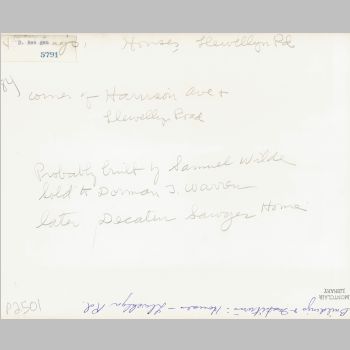 Houses, Llewellyn Rd
5791
84
corner of Harrison Ave +
Llewellyn Road
Probably built by Samuel Wilde
Sold to Dorman T. Warren
later Decatur Sawyer Home
P2501
Buildings & Institutions: Houses - Llewellyn Rd.
MONTCLAIR
LIBRARY